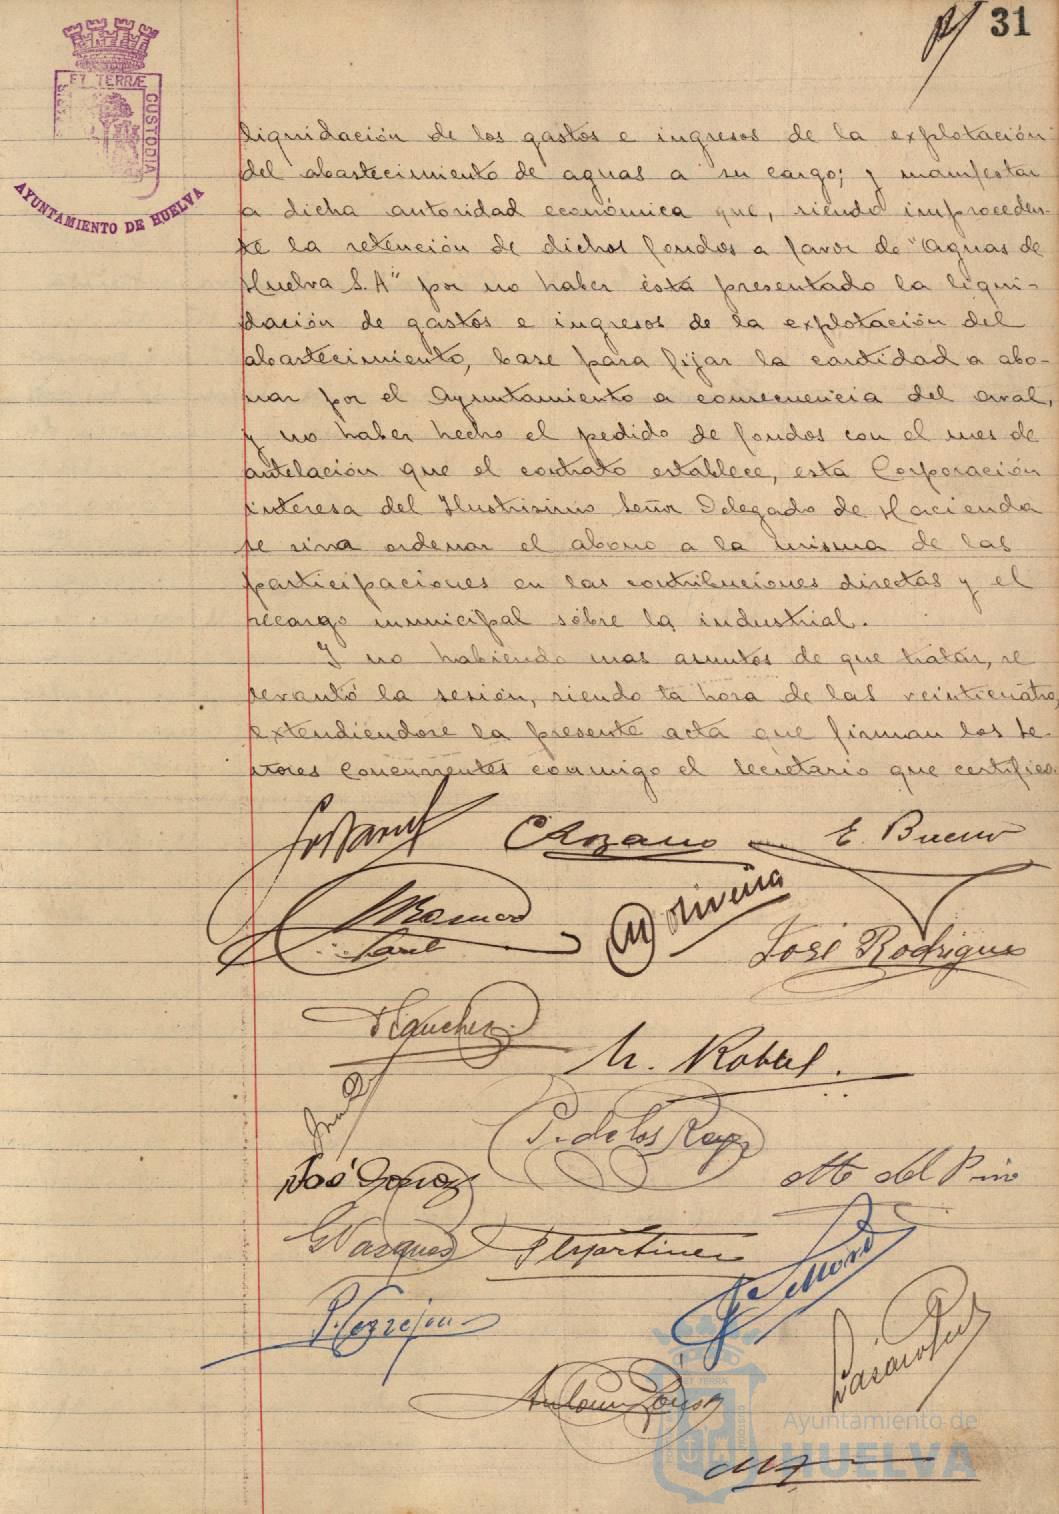 31
ET TERRÆ
CUSTODIA
AYUNTAMIENTO DE HUELVA
liquidación de los gastos e ingresos de la explotación
del abastecimiento de aguas a su cargo; y manifestar
a dicha autoridad económica que, siendo improceden-
te la retención de dichos fondos a favor de "Aguas de
Huelva S.A" por no haber ésta presentado la liqui-
dación de gastos e ingresos de la explotación del
abastecimiento, base para fijar la cantidad a abo-
nar por el Ayuntamiento a consecuencia del aval,
y no haber hecho el pedido de fondos con el mes de
antelación que el contrato establece, esta Corporación
interesa del Ilustrisimo Señor Delegado de Hacienda
se sirva ordenar el abono a la misma de las
participaciones en las contribuciones directas y el
recargo municipal sobre la industrial.
Y no habiendo mas asuntos de que tratar, se
levantó la sesión, siendo la hora de las veinticuatro,
extendiendose la presente acta que firman los se-
ñores concurrentes conmigo el secretario que certifico.
E. Bueno
Oliveira
José Rodriguez
P. de los Reyes
del Pino
G Vazquez F Martinez
P. Cerrejon
Ayuntamiento de
HUELVA